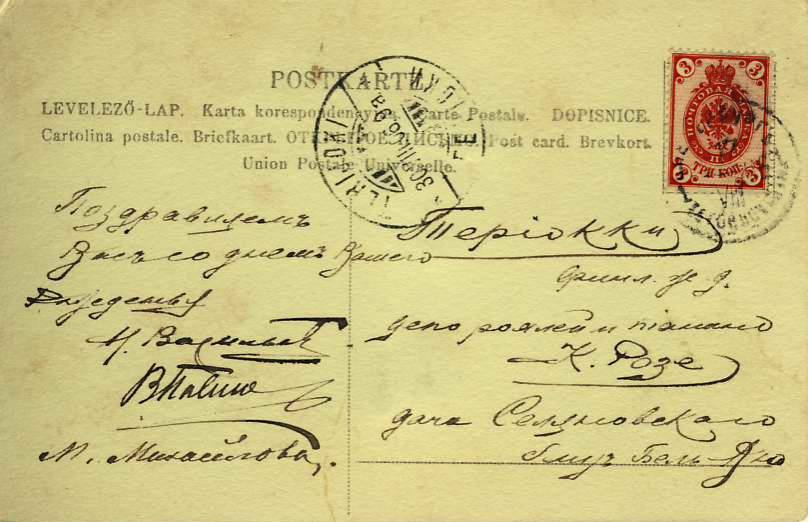 POSTKARTE
LEVELEZŐ-LAP. Karta korespondencyjna. Carte Postale. DOPISNICE.
Cartolina postale. Briefkaart. ОТКРЫТОЕ ПИСЬМО. Post card. Brevkort.
Union Postale Universelle.
3 3
ПОЧТОВАЯ
ТРИ КОП.
3 3
TERIJOKI
30.VII.09
Поздравляемъ
Васъ со днемъ Вашего
рожденья
Н. Васильев
М. Михайлова.
Терiокки
Финл. ж. д.
депо роялей и пианино
К. Розе
дача Семяновскаго
близъ Бель-Вю